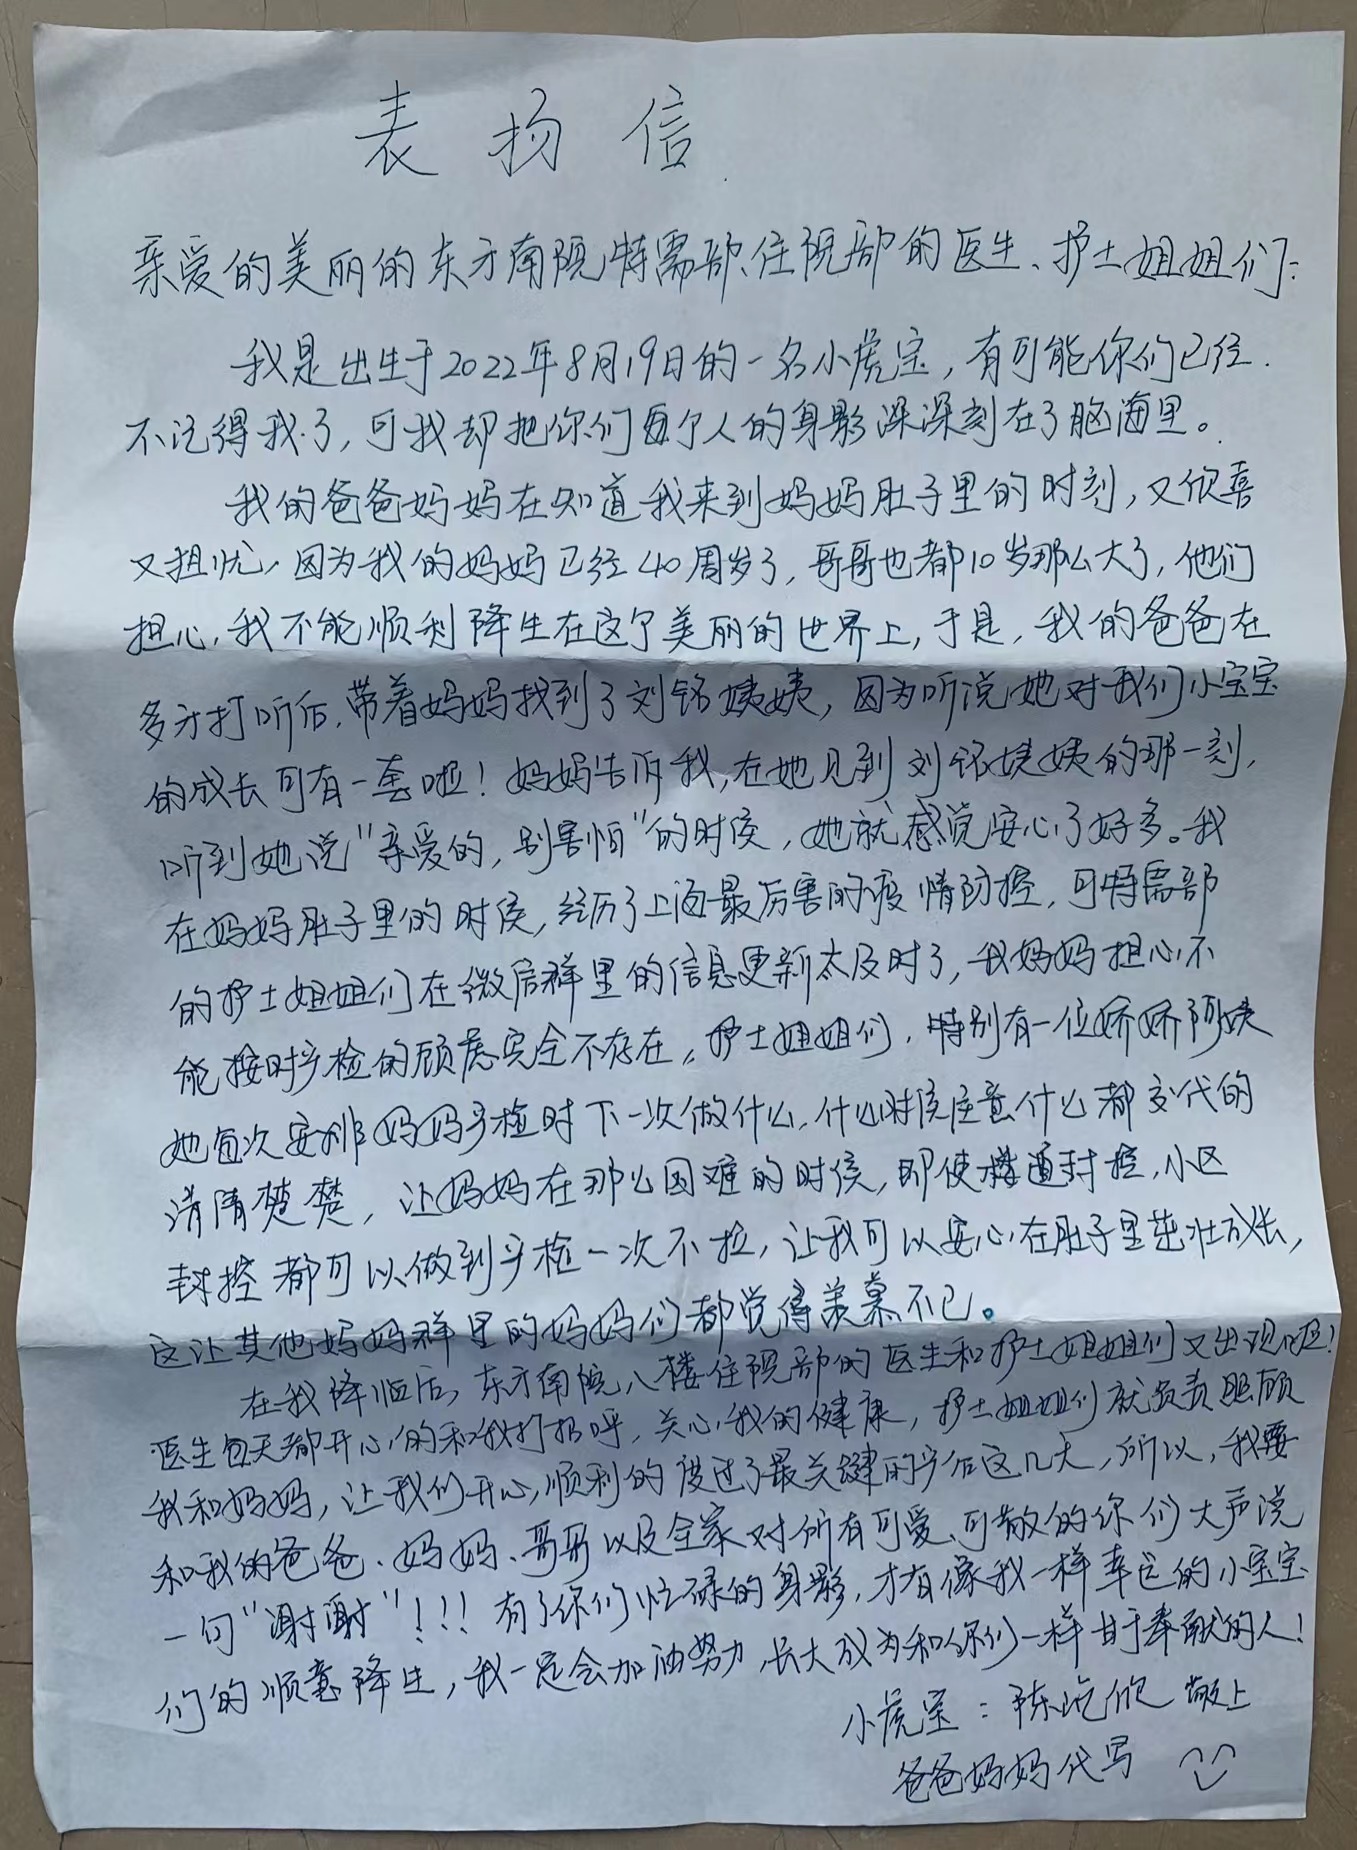 表扬信
亲爱的美丽的东方南院特需部、住院部的医生、护士姐姐们：
我是出生于2022年8月19日的一名小虎宝，有可能你们已经
不记得我了，可我却把你们每个人的身影深深刻在了脑海里。
我的爸爸妈妈在知道我来到妈妈肚子里的时刻，又欣喜
又担忧，因为我的妈妈已经40周岁了，哥哥也都10岁那么大了，他们
担心，我不能顺利降生在这个美丽的世界上，于是，我的爸爸在
多方打听后，带着妈妈找到了刘铭姨姨，因为听说她对我们小宝宝
的成长可有一套啦！妈妈告诉我，在她见到刘铭姨姨的那一刻，
听到她说“亲爱的，别害怕”的时候，她就感觉安心了好多。我
在妈妈肚子里的时候，经历了上海最厉害的疫情防控，可特需部
的护士姐姐们在微信群里的信息更新太及时了，我妈妈担心不
能按时产检的顾虑完全不存在。护士姐姐们，特别有一位娇娇阿姨
她每次安排妈妈产检时下一次做什么，什么时候注意什么都交代的
清清楚楚，让妈妈在那么困难的时候，即使楼道封控，小区
封控都可以做到产检一次不拉，让我可以安心在肚子里茁壮成长，
这让其他妈妈群里的妈妈们都觉得羡慕不已。
在我降临后，东方南院八楼住院部的医生和护士姐姐们又出现啦！
医生每天都开心的和我打招呼，关心我的健康，护士姐姐们就负责照顾
我和妈妈，让我们开心，顺利的度过了最关键的产后这几天，所以，我要
和我的爸爸、妈妈、哥哥以及全家对所有可爱、可敬的你们大声说
一句“谢谢”！！！有了你们忙碌的身影，才有像我一样幸运的小宝宝
们的顺意降生，我一定会加油努力，长大成为和你们一样甘于奉献的人！
小虎宝：陈屹欣 敬上
爸爸妈妈代写